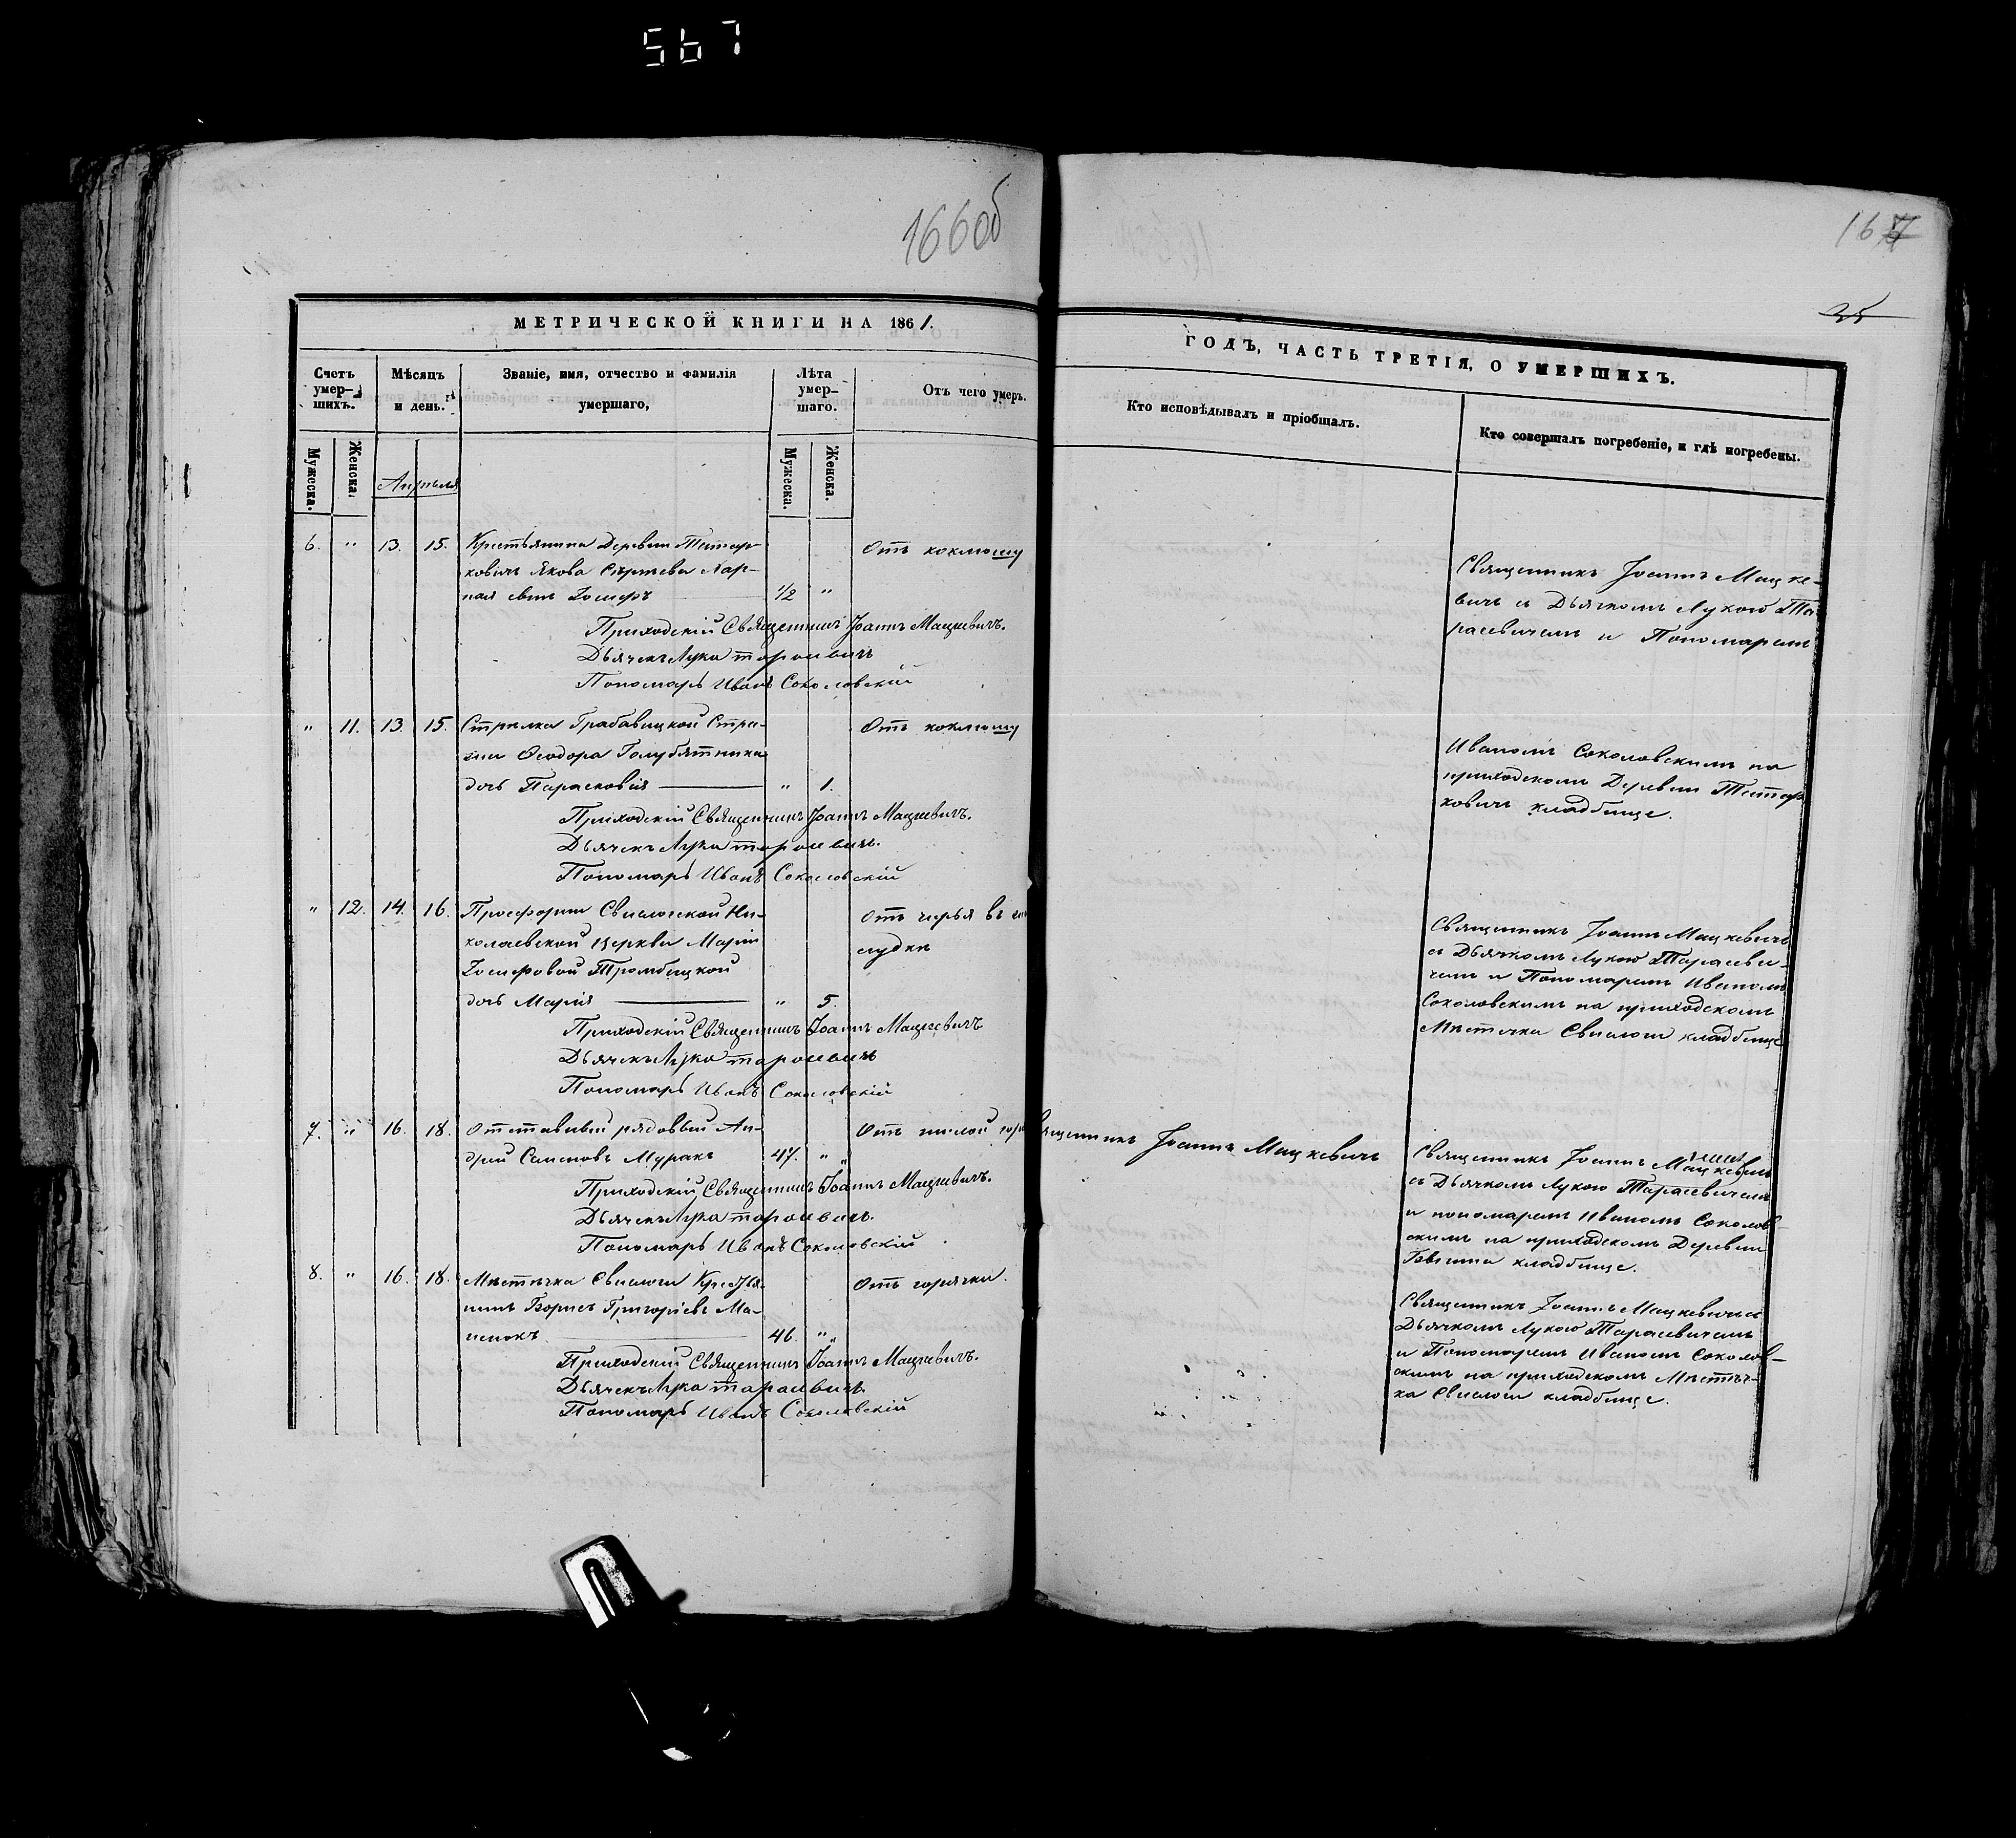 567
166об
167
25
МЕТРИЧЕСКОЙ КНИГИ НА 1861.
Счетъ умер-шихъ.
Мѣсяцъ и день.
Званіе, имя, отчество и фамилія умершаго,
Лѣта умер-шаго.
Отъ чего умеръ.
Мужеска.
Женска.
Мужеска.
Женска.
Апрѣля
6. " 13. 15. Крестьянина Деревни Тетер- Отъ коклюшу
ковичъ Якова Сергѣева
сынъ Іосифъ 1/2 "
Приходскій Священникъ Іоаннъ Мацкевичъ.
Дьячекъ Лука Тарасевичъ
Пономарь Иванъ Соколовскій
" 11. 13. 15. Стрѣлка Грабавецкой Стра- Отъ коклюшу
жи Ѳеодора Голубятника
дочь Парасковія " 1.
Приходскій Священникъ Іоаннъ Мацкевичъ.
Дьячекъ Лука Тарасевичъ.
Пономарь Иванъ Соколовскій
" 12. 14. 16. Просфорни Свислочской Ни- Отъ черья въ
колаевской Церкви Маріи
Іосифовой Тромбицкой
дочь Марія " 5.
Приходскій Священникъ Іоаннъ Мацкевичъ
Дьячекъ Лука Тарасевичъ
Пономарь Иванъ Соколовскій
7. " 16. 18. Отставный рядовый Ан- Отъ гнилой
дрей Семеновъ Муракъ 47. "
Приходскій Священникъ Іоаннъ Мацкевичъ.
Дьячекъ Лука Тарасевичъ.
Пономарь Иванъ Соколовскій
8. " 16. 18. Мѣстечка Свислочи Крестья- Отъ горячки.
нинъ Борисъ Григоріевъ Ма-
46. "
Приходскій Священникъ Іоаннъ Мацкевичъ.
Дьячекъ Лука Тарасевичъ
Пономарь Иванъ Соколовскій
ГОДЪ, ЧАСТЬ ТРЕТІЯ, О УМЕРШИХЪ.
Кто исповѣдывалъ и пріобщалъ.
Кто совершалъ погребеніе, и гдѣ погребены.
Священникъ Іоаннъ Мацке-
вичъ съ Дьячкомъ Лукою Та-
расевичемъ и Пономаремъ
Иваномъ Соколовскимъ на
приходскомъ Деревни Тетер-
ковичъ кладбище.
Священникъ Іоаннъ Мацкевичъ
съ Дьячкомъ Лукою Тарасеви-
чемъ и Пономаремъ Иваномъ
Соколовскимъ на приходскомъ
Мѣстечка Свислочи кладбище
Священникъ Іоаннъ Мацкевичъ
Священникъ Іоаннъ Мацкевичъ
съ Дьячкомъ Лукою Тарасевичемъ
и пономаремъ Иваномъ Соколов-
скимъ на приходскомъ Деревни
кладбище.
Священникъ Іоаннъ Мацкевичъ съ
Дьячкомъ Лукою Тарасевичемъ
и Пономаремъ Иваномъ Соколов-
скимъ на приходскомъ Мѣстеч-
ка Свислочи кладбище.